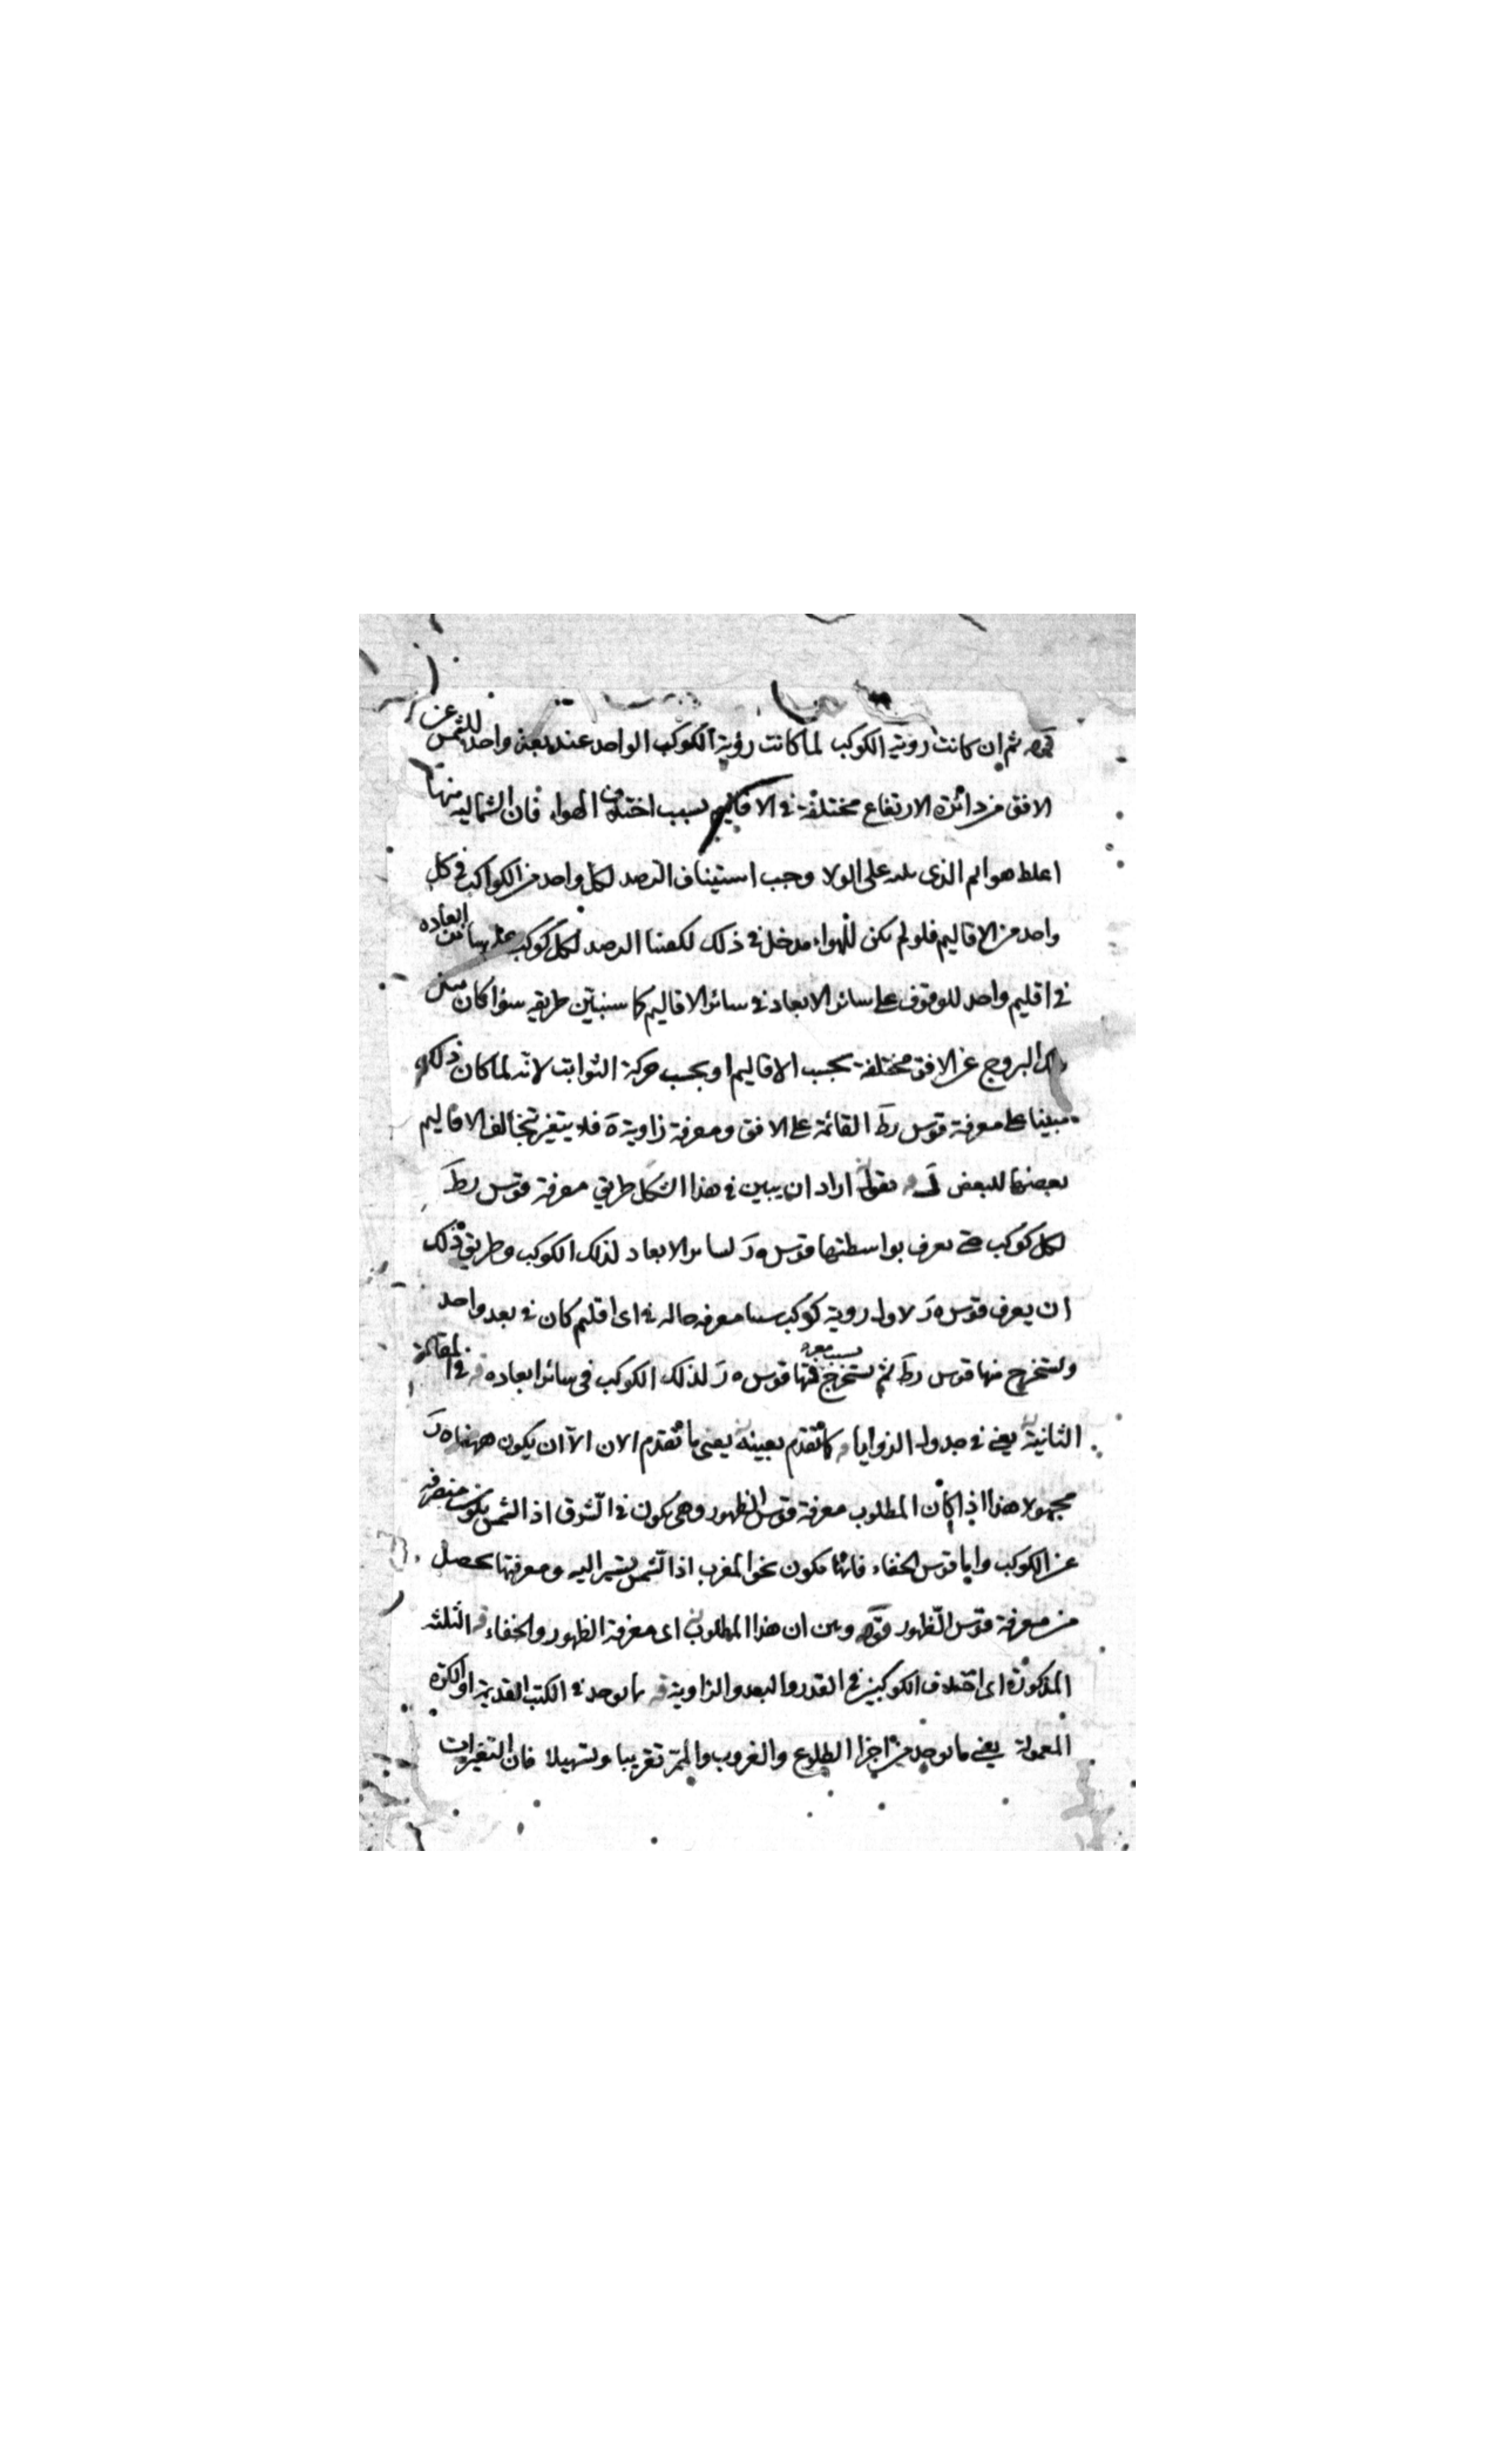 قوله ثم ان كانت رؤية الكوكب لما كانت رؤية الكوكب الواحد عند بعد واحد للشمس عن
الافق من دائرة الارتفاع مختلفة في الاقاليم بسبب اختلاف الهواء فان الشمالية منها
اغلظ هواء من الذى على الولا وجب استيناف الرصد لكل واحد من الكواكب في كل
واحد من الاقاليم فلو لم يكن للهواء مدخل في ذلك لكفينا الرصد لكل كوكب ابعاده
في اقليم واحد للوقوف على سائر الابعاد في سائر الاقاليم كما سنبين طريقه سواء كان
البروج عن الافق مختلفة بحسب الاقاليم او بحسب حركة الثوابت لانه لما كان ذلك
مبينا على معرفة قوس رط القائمة على الافق ومعرفة زاوية ه فلا يتغير تخالف الاقاليم
بعضها لبعض نقول اراد ان يبين في هذا الشكل طريق معرفة قوس رط
لكل كوكب حتى يعرف بواسطتها قوس ه ر لسائر الابعاد لذلك الكوكب وطريق ذلك
ان يعرف قوس ه ر لاول روية كوكب معرفة حاله في اى اقليم كان في بعد واحد
ونستخرج منها قوس رط ثم نستخرج بسبب معرفتها قوس ه ر لذلك الكوكب في سائر ابعاده في المقالة
الثانية يعني في جدول الزوايا كما تقدم بعينه يعني ما تقدم الان الا ان يكون ههنا ه ر
مجهولا هذا اذا كان المطلوب معرفة قوس الظهور وهى يكون في الشرق اذ الشمس يكون منصرفة
عن الكوكب واما قوس الخفاء فانها تكون نحو المغرب اذ الشمس يشير اليه ومعرفتها تحصل
من معرفة قوس الظهور قوله وبين ان هذا المطلوب اى معرفة الظهور والخفاء الثلثه
المذكورة اى اختلاف الكوكبين في القدر والبعد والزاوية ما يوجد في الكتب القديمة او الكرة
المعمولة يعني ما يوجد من اجزاء الطلوع والغروب والممر تقريبا وتسهيلا فان التغيرات